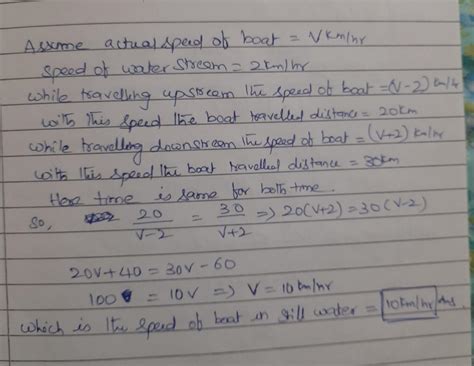 Assume actual speed of boat = V km/hr
speed of water stream = 2 km/hr
while travelling upstream the speed of boat = (V-2) km/hr
with this speed the boat travelled distance = 20km
while travelling downstream the speed of boat = (V+2) km/hr
with this speed the boat travelled distance = 30km
Here time is same for both time.
So, 20/V-2 = 30/V+2 => 20(V+2) = 30(V-2)
20V+40 = 30V-60
100 = 10V => V = 10 km/hr
which is the speed of boat in still water = 10km/hr Ans